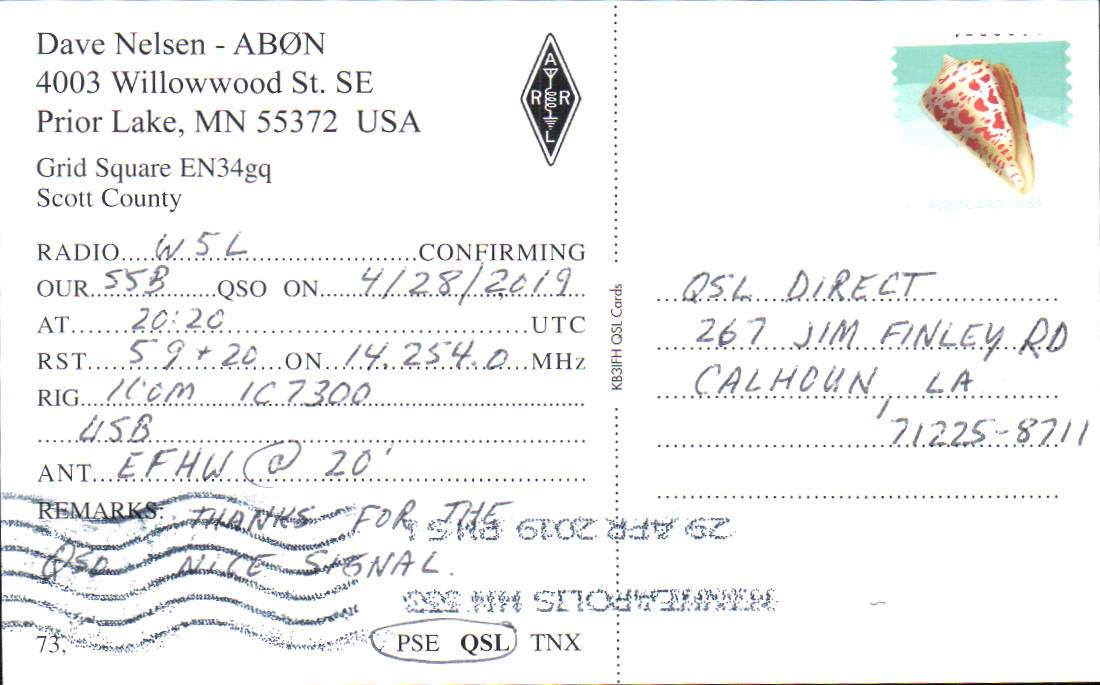 Dave Nelsen - ABØN
4003 Willowwood St. SE
Prior Lake, MN 55372 USA
Grid Square EN34gq
Scott County
ARRL
RADIO....W5L....CONFIRMING
OUR..SSB....QSO ON..4/28/2019
AT....20:20....UTC
RST..59+20..ON..14.254.0..MHz
RIG..ICOM IC7300
USB
ANT..EFHW @ 20'
REMARKS: THANKS FOR THE
QSO NICE SIGNAL.
73,
PSE QSL TNX
KB3IFH QSL Cards
POSTCARD USA
QSL DIRECT
267 JIM FINLEY RD
CALHOUN, LA
71225-8711
MINNEAPOLIS MN
29 APR 2019 PM